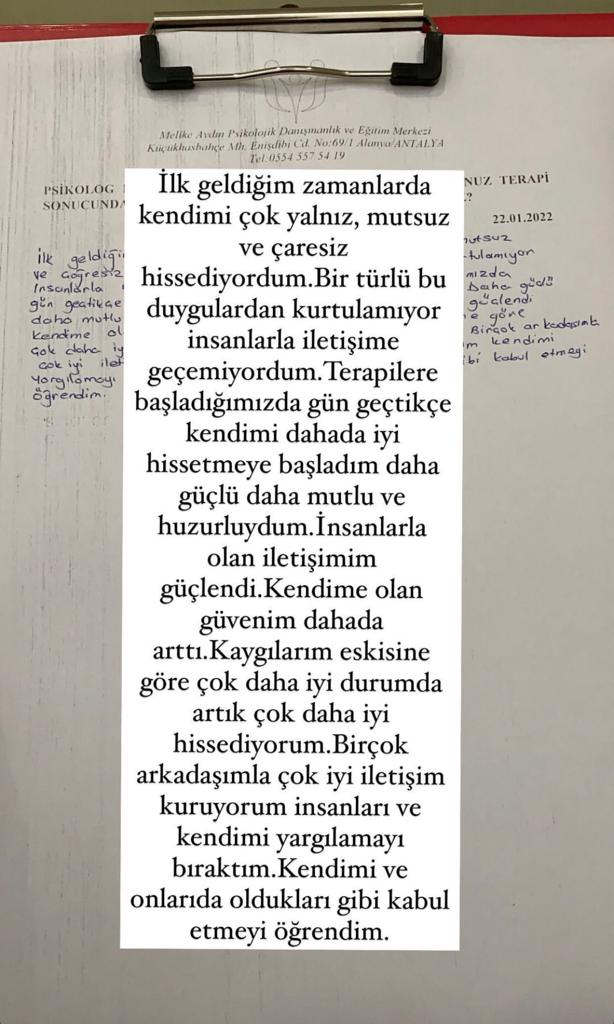 Melike Aydın Psikolojik Danışmanlık ve Eğitim Merkezi
Küçükhasbahçe Mh. Enişdibi Cd. No:69/1 Alanya/ANTALYA
Tel:0554 557 54 19
PSİKOLOG NUZ TERAPİ
SONUCUNDA ?
22.01.2022
İlk geldiğim zamanlarda
kendimi çok yalnız, mutsuz
ve çaresiz
hissediyordum.Bir türlü bu
duygulardan kurtulamıyor
insanlarla iletişime
geçemiyordum.Terapilere
başladığımızda gün geçtikçe
kendimi dahada iyi
hissetmeye başladım daha
güçlü daha mutlu ve
huzurluydum.İnsanlarla
olan iletişimim
güçlendi.Kendime olan
güvenim dahada
arttı.Kaygılarım eskisine
göre çok daha iyi durumda
artık çok daha iyi
hissediyorum.Birçok
arkadaşımla çok iyi iletişim
kuruyorum insanları ve
kendimi yargılamayı
bıraktım.Kendimi ve
onlarıda oldukları gibi kabul
etmeyi öğrendim.
İlk geldiği mutsuz
ve çaresiz tulamıyor
İnsanlarla mızda
gün geçtikçe Daha güçlü
daha mutlu güçlendi
Kendime ol e göre
çok daha iy Birçok arkadaşımla
çok iyi ilet m kendimi
Yargılamayı ibi kabul etmeyi
öğrendim.